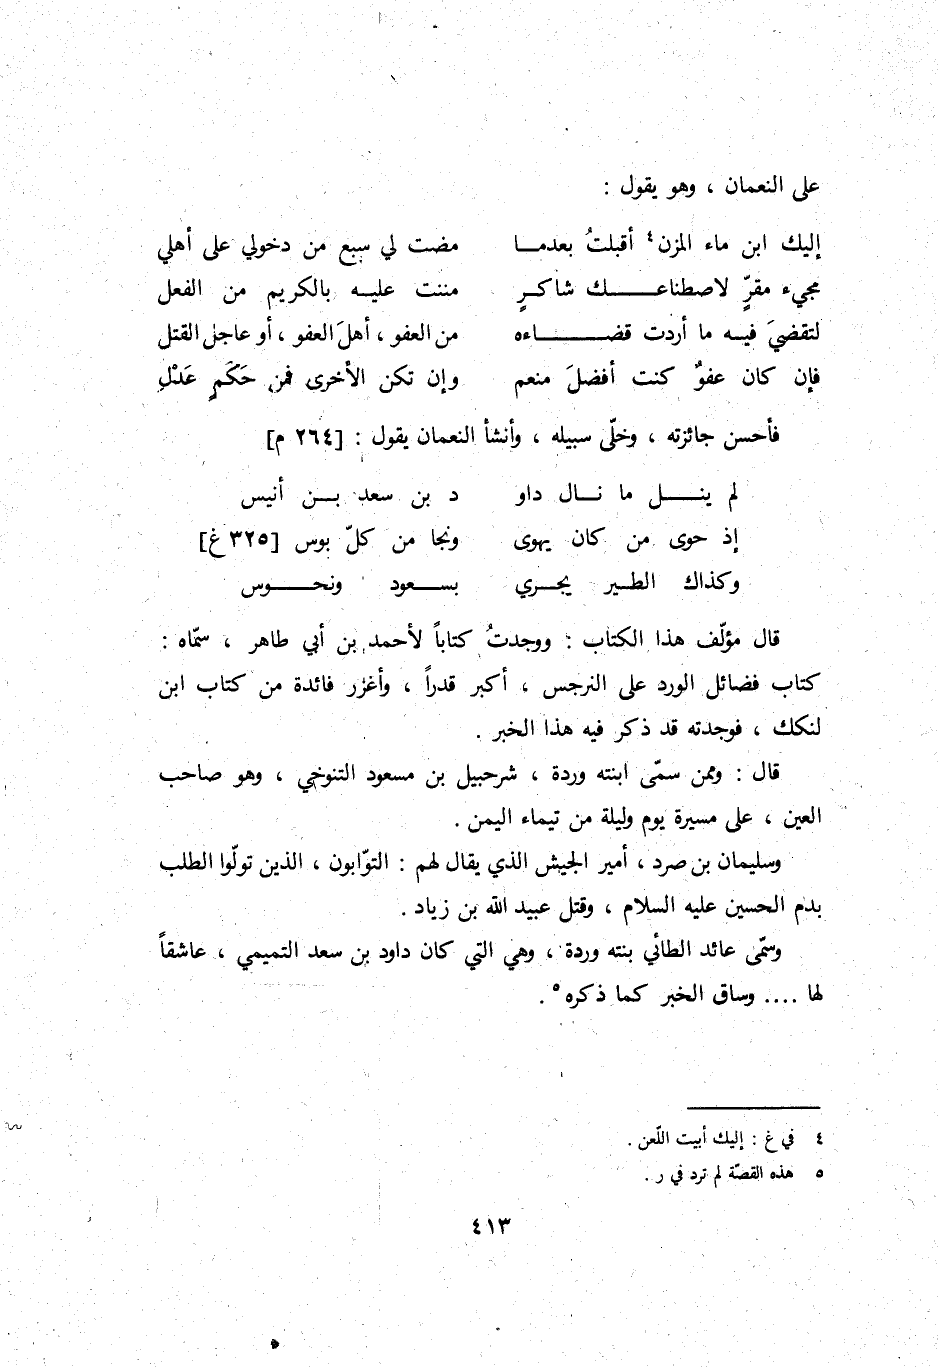 على النعمان ، وهو يقول :
إليك ابن ماء المزن٤ أقبلتُ بعدمـــا مضت لي سبع من دخولي على أهلي
مجيء مقرٍّ لاصطناعـــــــك شاكـرٍ مننت عليـه بالكريم من الفعل
لتقضيَ فيـه ما أردت قضــــــــاءه من العفو ، أهلَ العفو ، أو عاجل القتل
فإن كان عفوٌ كنت أفضلَ منعم وإن تكن الأخرى فمن حَكَمٍ عَدْلِ
فأحسن جائزته ، وخلّى سبيله ، وأنشأ النعمان يقول : [٢٦٤ م]
لم ينـــــل ما نــال داو د بن سعد بـــن أنيس
إذ حوى من كان يهوى ونجا من كلّ بوس [٣٢٥ غ]
وكذاك الطـير يجـــري بســـعود ونحــــــوس
قال مؤلّف هذا الكتاب : ووجدتُ كتاباً لأحمد بن أبي طاهر ، سمّاه :
كتاب فضائل الورد على النرجس ، أكبر قدراً ، وأغزر فائدة من كتاب ابن
لنكك ، فوجدته قد ذكر فيه هذا الخبر .
قال : وممن سمّى ابنته وردة ، شرحبيل بن مسعود التنوخي ، وهو صاحب
العين ، على مسيرة يوم وليلة من تيماء اليمن .
وسليمان بن صرد ، أمير الجيش الذي يقال لهم : التوّابون ، الذين تولّوا الطلب
بدم الحسين عليه السلام ، وقتل عبيد الله بن زياد .
وسمّى عائد الطائي بنته وردة ، وهي التي كان داود بن سعد التميمي ، عاشقاً
لها .... وساق الخبر كما ذكره٥ .
٤ في غ : إليك أبيت اللّعن .
٥ هذه القصّة لم ترد في ر .
٤١٣